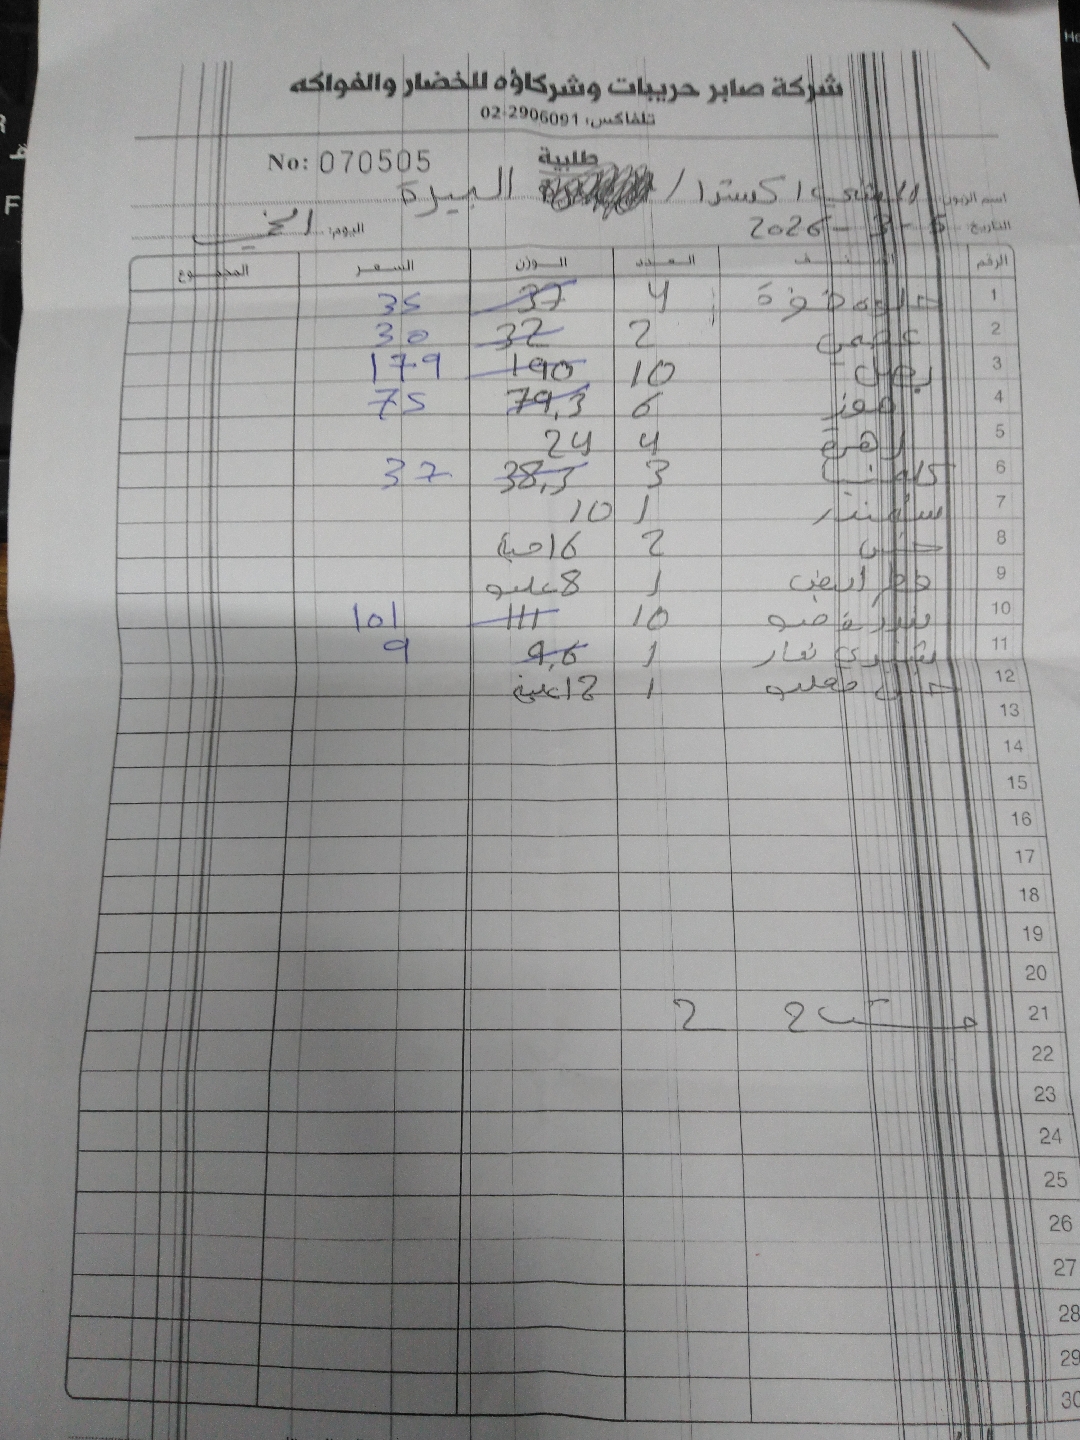 شركة صابر حريبات وشركاؤه للخضار والفواكه
تلفاكس: 02-2906091
طلبية
No: 070505
اسم الزبون: اكسترا / البيرة
التاريخ: 5 - 3 - 2026 اليوم: الخميس
الرقم الصنف العدد الوزن السعر المجموع
1 4 37 35
2 2 32 30
3 بصل 10 190 179
4 موز 6 79,3 75
5 زهرة 4 24
6 3 38,3 37
7 شمندر 1 10
8 خس 2 16 حبة
9 فطر ابيض 1 8 علبه
10 10 111 101
11 1 9,6 9
12 خس 1 12 علبة
13
14
15
16
17
18
19
20
21 2 2
22
23
24
25
26
27
28
29
30